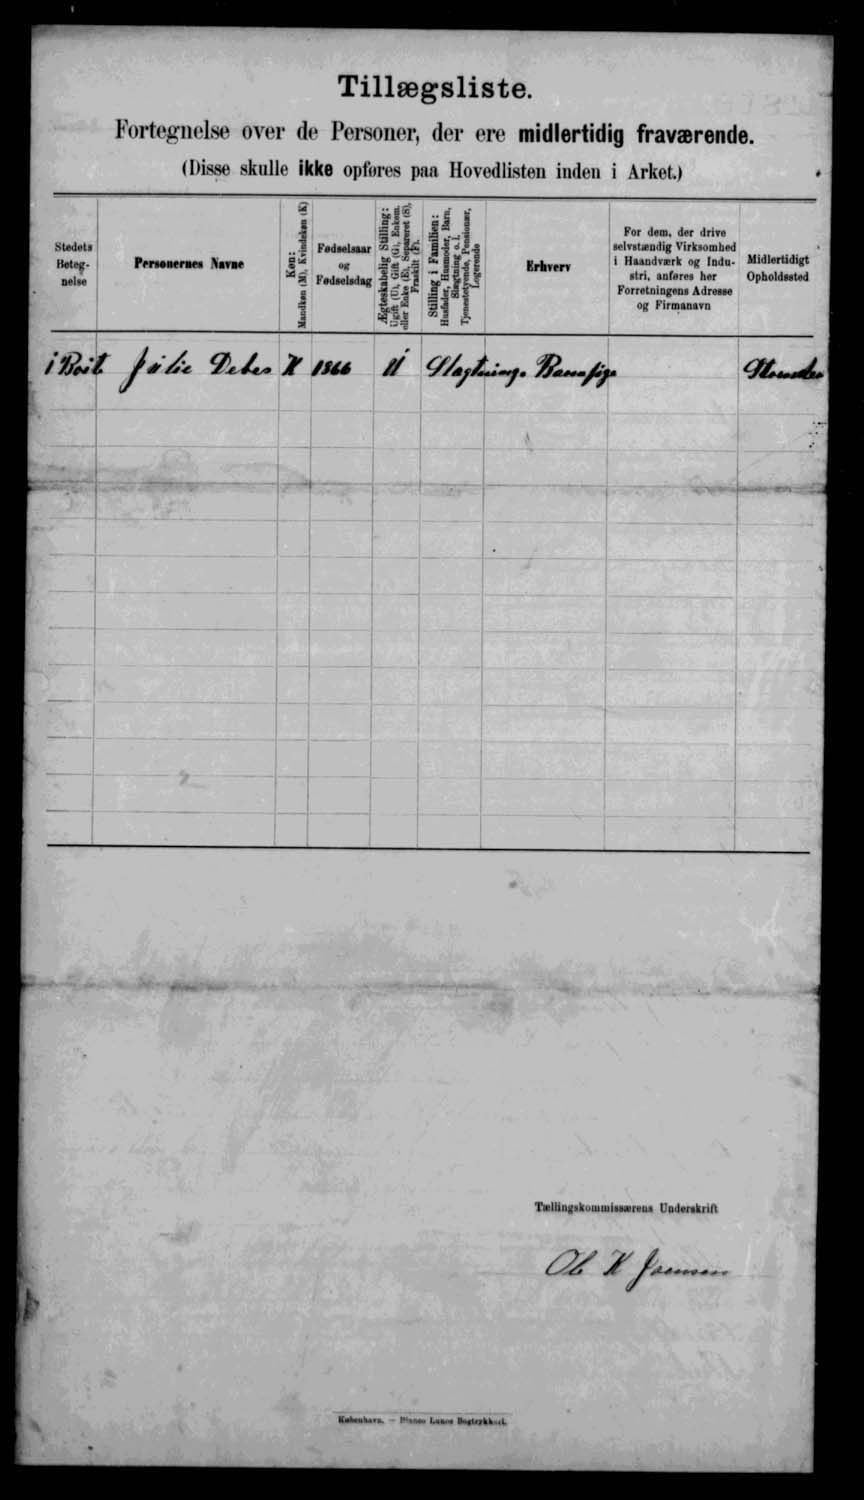 Tillægsliste.
Fortegnelse over de Personer, der ere midlertidig fraværende.
(Disse skulle ikke opføres paa Hovedlisten inden i Arket.)
Stedets
Beteg-
nelse
Personernes Navne
Køn:
Mandkøn (M), Kvindekøn (K)
Fødselsaar
og
Fødselsdag
Ægteskabelig Stilling:
Ugift (U), Gift (G), Enkem.
eller Enke (E), Separeret (S),
Fraskilt (F).
Stilling i Familien:
Husfader, Husmoder, Barn,
Slægtning o. l.
Tjenestetyende, Pensionær,
Logerende
Erhverv
For dem, der drive
selvstændig Virksomhed
i Haandværk og Indu-
stri, anføres her
Forretningens Adresse
og Firmanavn
Midlertidigt
Opholdssted
i Boit Julie Debes K 1866 U Slagtninge
Tællingskommissærens Underskrift
K Joensen
København. — Bianco Lunos Bogtrykkeri.